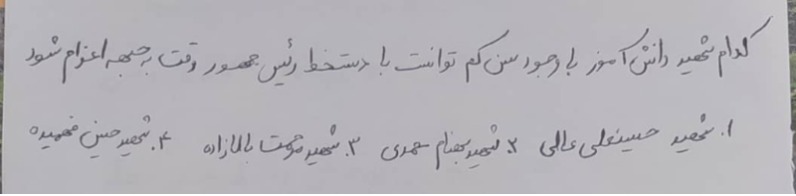 کدام شهید دانش آموز با وجود سن کم توانست با دستخط رئیس جمهور وقت به جبهه اعزام شود
۱. شهید حسینعلی عالی ۲. شهید بهنام محمدی ۳. شهید مرحمت بالازاده ۴. شهید حسین فهمیده